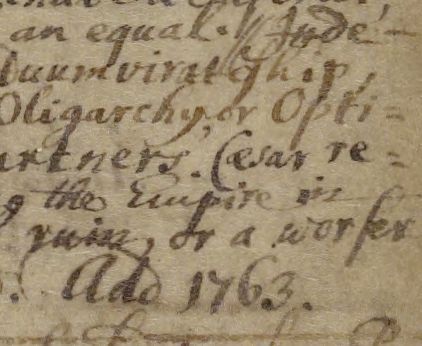 an equal. Inde-
Duumvirateship,
Oligarchy, or Opti=
artners. Cæsar re=
the Empire in
ruin, or a worser
Add 1763.